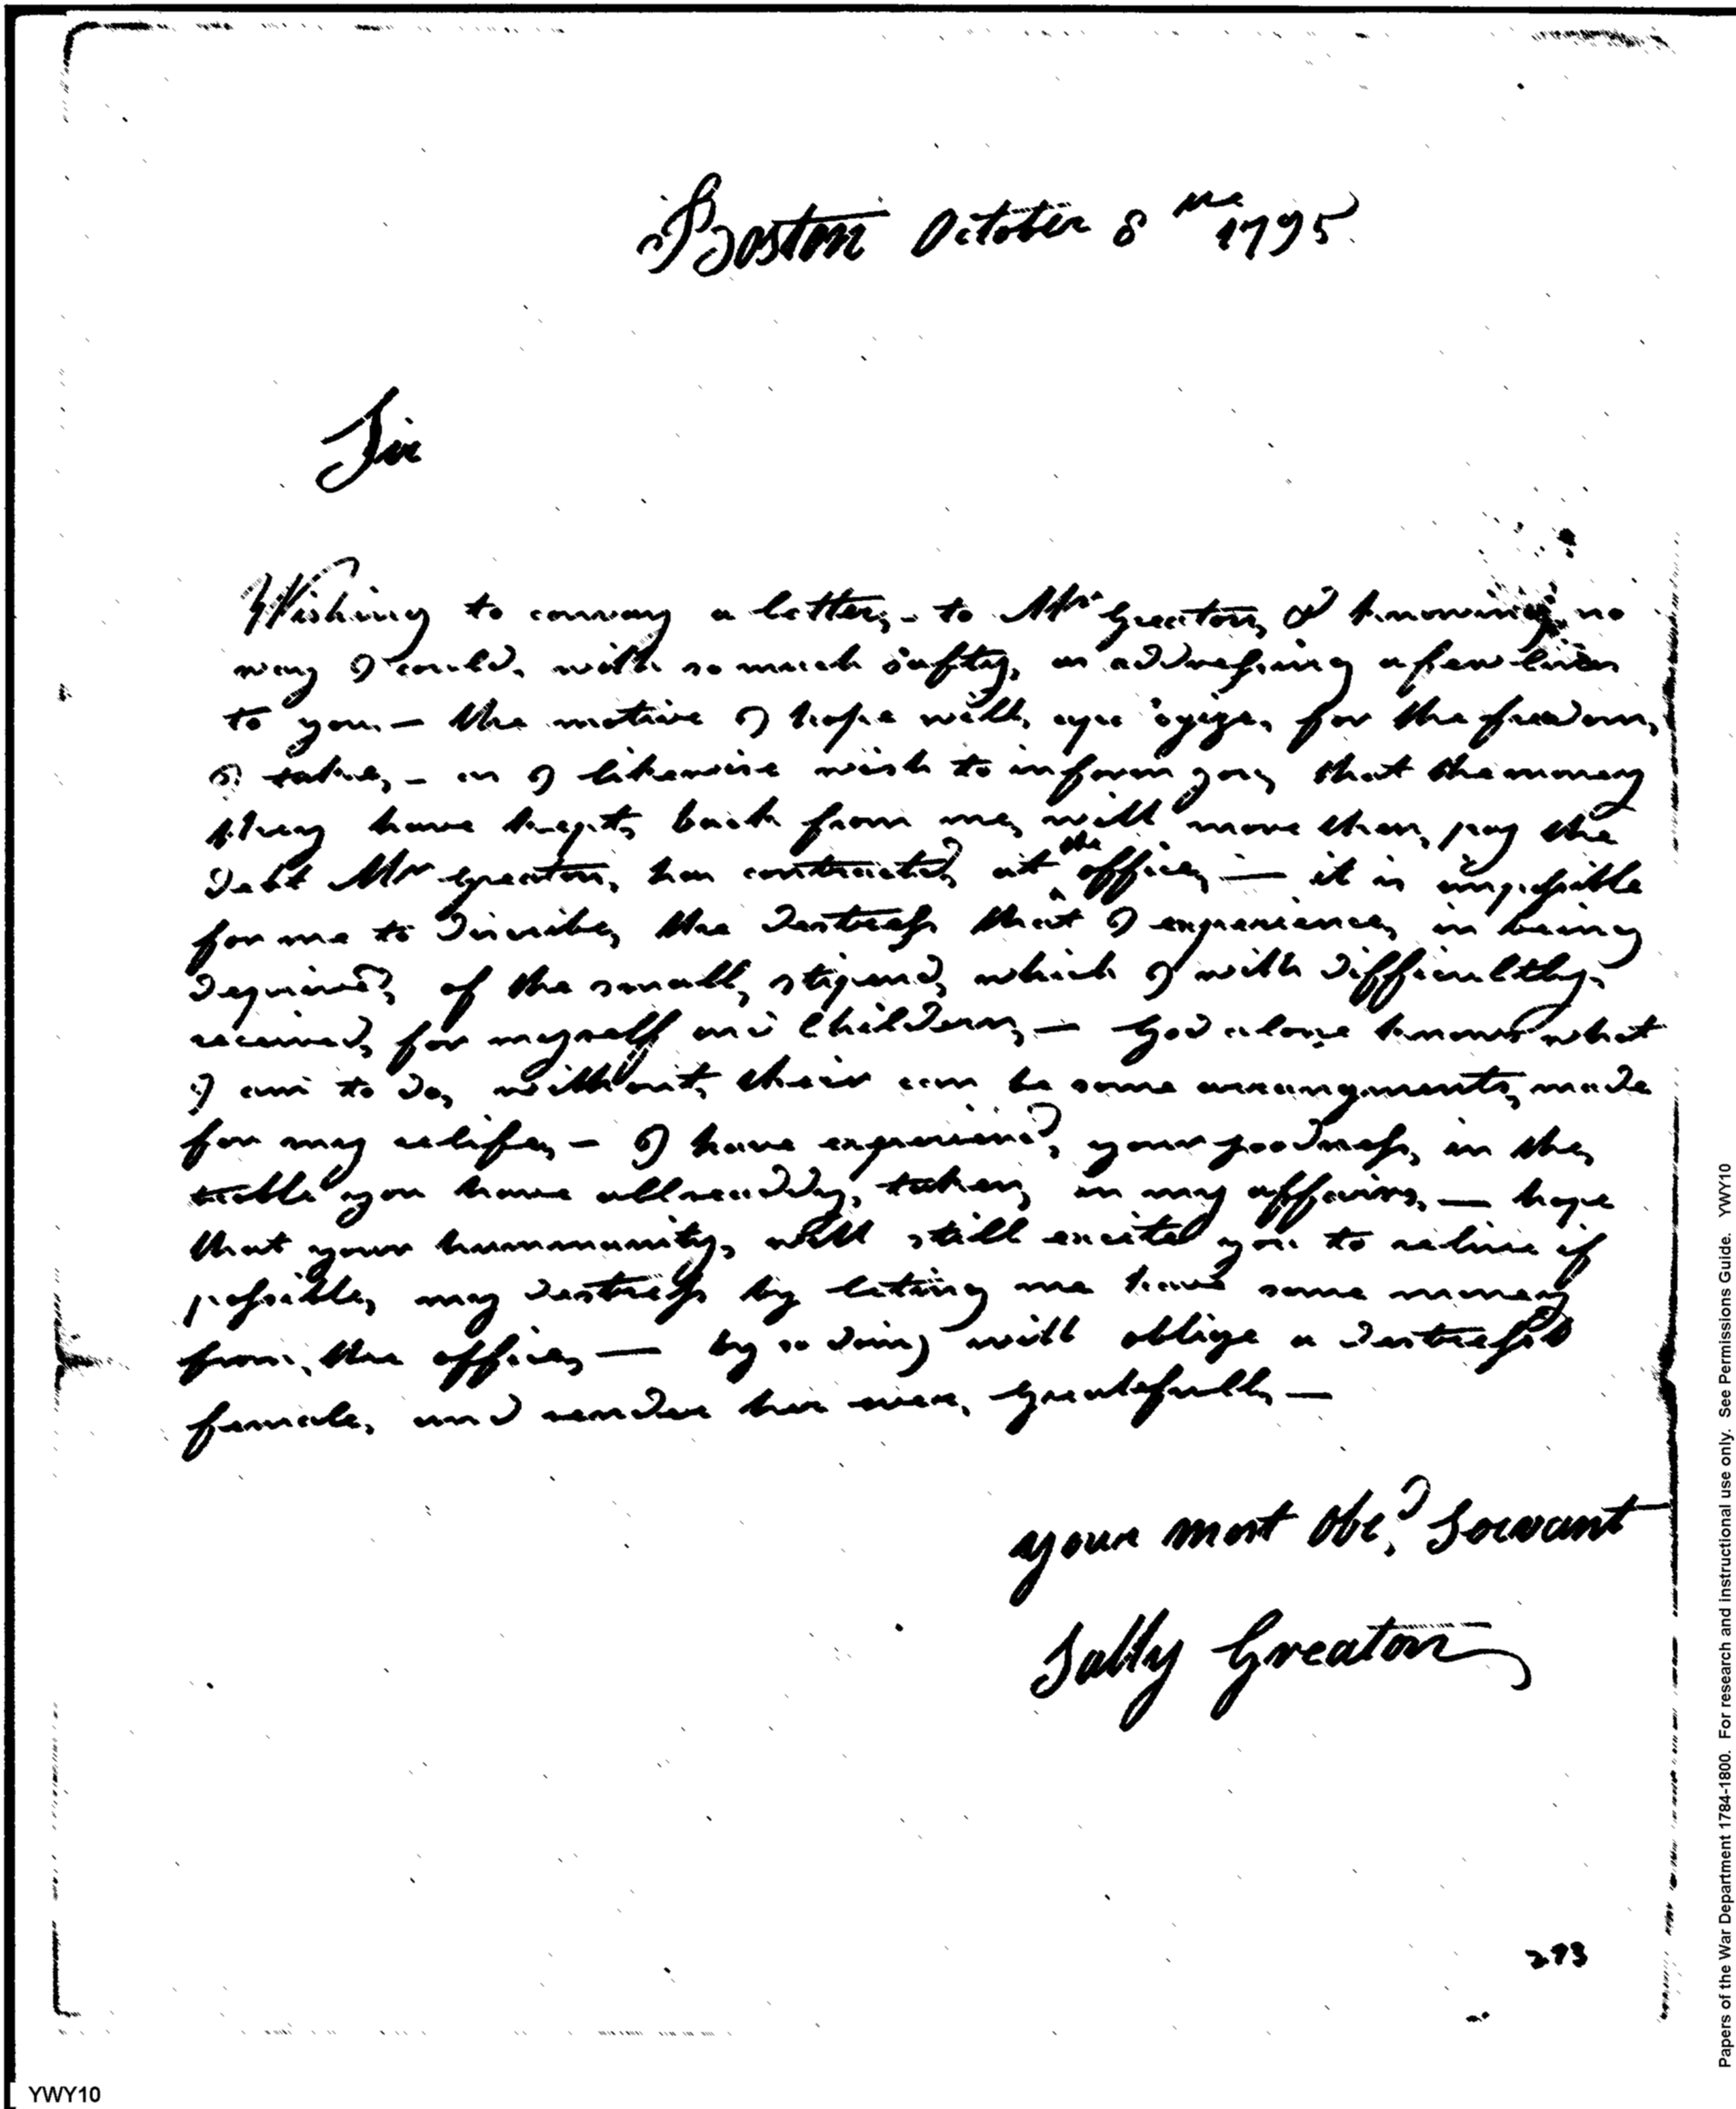 Boston October 8 1795.
Sir
Wishing to convay a letter,- to Mr Greaton, & knowing no
way I could, with so much safty, as addressing a few lines
to you - the motive I hope will, for the freedom,
I take, - as I likewise wish to inform you, that the money
they have kept, back from me, will more than, pay the
debt Mr Greaton, has contracted, at the office, — it is impossible
for me to discribe, the destress that I experience, in being
deprived, of the small, stipend, which I with difficultly,
received, for myself and Childern, — God alone knows what
I am to do, without, their can be some arrangments, made
for my relife, - I have experienced, your goodness, in the,
truble you have allreaddy, taken, in my affairs, — hope
that your hummanity, will still excite you to relive if
possible, my destress by leting me have some money
from, the office, — by so doing will oblige a destressd
female, and render her ever, greatefull, —
your most Obed, Servant
Sally Greaton
293
YWY10
Papers of the War Department 1784-1800. For research and instructional use only. See Permissions Guide. YWY10